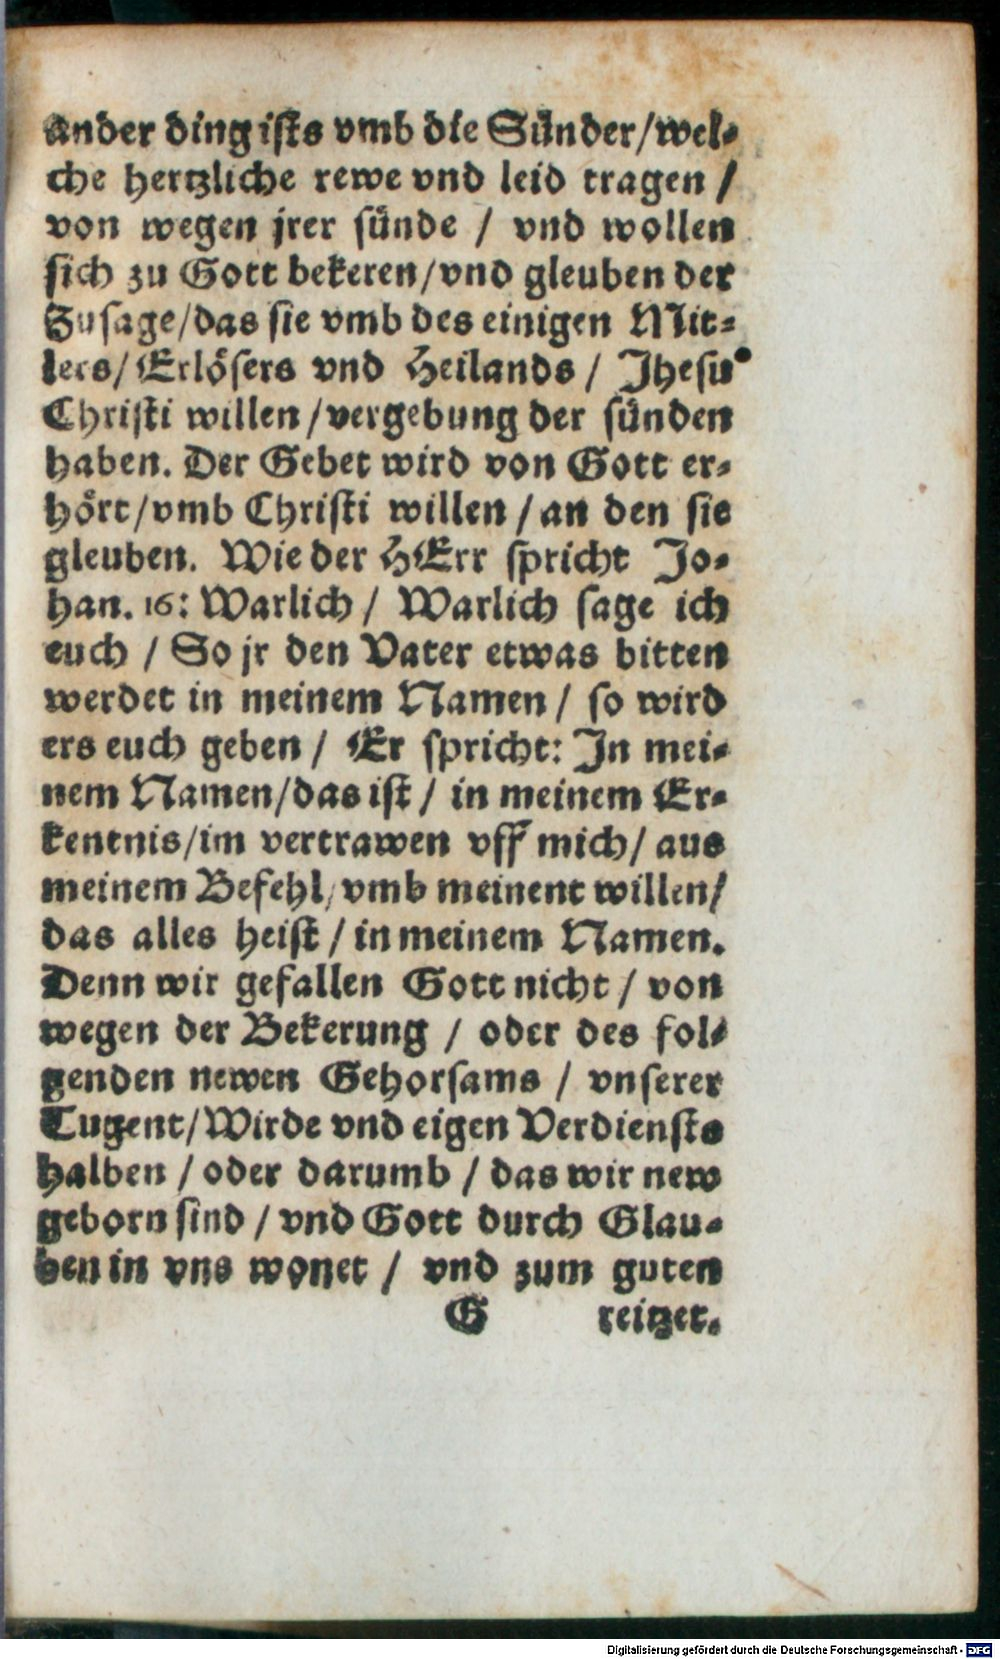 ander ding ists vmb die Sünder/wel-
che hertzliche rewe vnd leid tragen /
von wegen jrer sünde / vnd wollen
sich zu Gott bekeren/vnd gleuben der
Zusage/das sie vmb des einigen Mit-
lers/ Erlösers vnd Heilands / Jhesu
Christi willen /vergebung der sünden
haben. Der Gebet wird von Gott er-
hört/vmb Christi willen / an den sie
gleuben. Wie der HErr spricht Jo-
han. 16: Warlich / Warlich sage ich
euch / So jr den Vater etwas bitten
werdet in meinem Namen / so wird
ers euch geben / Er spricht: In mei-
nem Namen/das ist / in meinem Er-
kentnis/im vertrawen vff mich/ aus
meinem Befehl/ vmb meinent willen/
das alles heist / in meinem Namen.
Denn wir gefallen Gott nicht / von
wegen der Bekerung / oder des fol-
genden newen Gehorsams / vnserer
Tugent/Wirde vnd eigen Verdiensts
halben / oder darumb / das wir new
geborn sind / vnd Gott durch Glau-
ben in vns wonet / vnd zum guten
G reitzet.
Digitalisierung gefördert durch die Deutsche Forschungsgemeinschaft - DFG